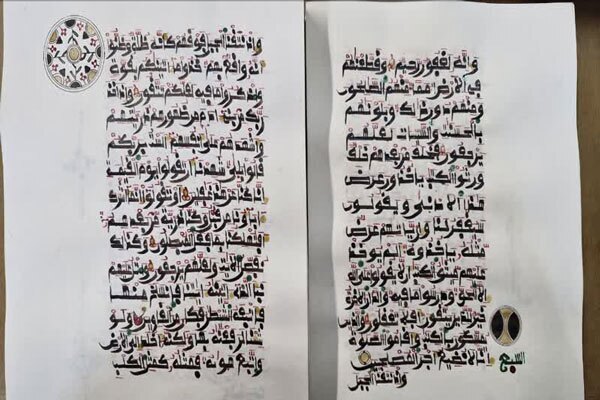 وإنه لغفور رحيم وقطعنهم
في الأرض أمما منهم الصلحون
ومنهم دون ذلك وبلونهم
بالحسنت والسيئات لعلهم
يرجعون فخلف من بعدهم خلف
ورثوا الكتب ياخذون عرض
هذا الادنى ويقولون
سيغفر لنا وإن ياتهم عرض
مثله ياخذوه ألم يوخذ
عليهم ميثق الكتب أن لا يقولوا على
الله إلا الحق ودرسوا ما فيه والدار الاخرة
خير للذين يتقون أفلا تعقلون والذين
يمسكون بالكتب وأقاموا الصلوة
إنا لا نضيع أجر المصلحين
السبع
وإذ نتقنا الجبل
وإذ نتقنا الجبل فوقهم كأنه ظلة وظنوا
أنه واقع بهم خذوا ما ءاتينكم بقوة
واذكروا ما فيه لعلكم تتقون وإذ اخذ
ربك من بني ءادم من ظهورهم ذريتهم
وأشهدهم على أنفسهم ألست بربكم
قالوا بلى شهدنا أن تقولوا يوم القيمة
إنا كنا عن هذا غفلين أو تقولوا إنما أشرك
ءاباؤنا من قبل وكنا ذرية من بعدهم
أفتهلكنا بما فعل المبطلون وكذلك
نفصل الايت ولعلهم يرجعون واتل عليهم
نبأ الذي ءاتينه ءايتنا فانسلخ منها
فأتبعه الشيطن فكان من الغاوين ولو
شئنا لرفعنه بها ولكنه أخلد إلى الارض
واتبع هويه فمثله كمثل الكلب